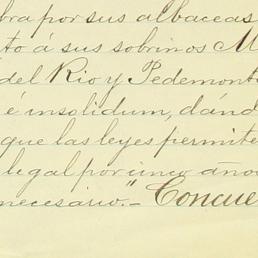 bra por sus albaceas
to á sus sobrinos M
del Rio y Pedemont
é insolidum, dánd
que las leyes permite
legal por cinco año
necesario."- Concue